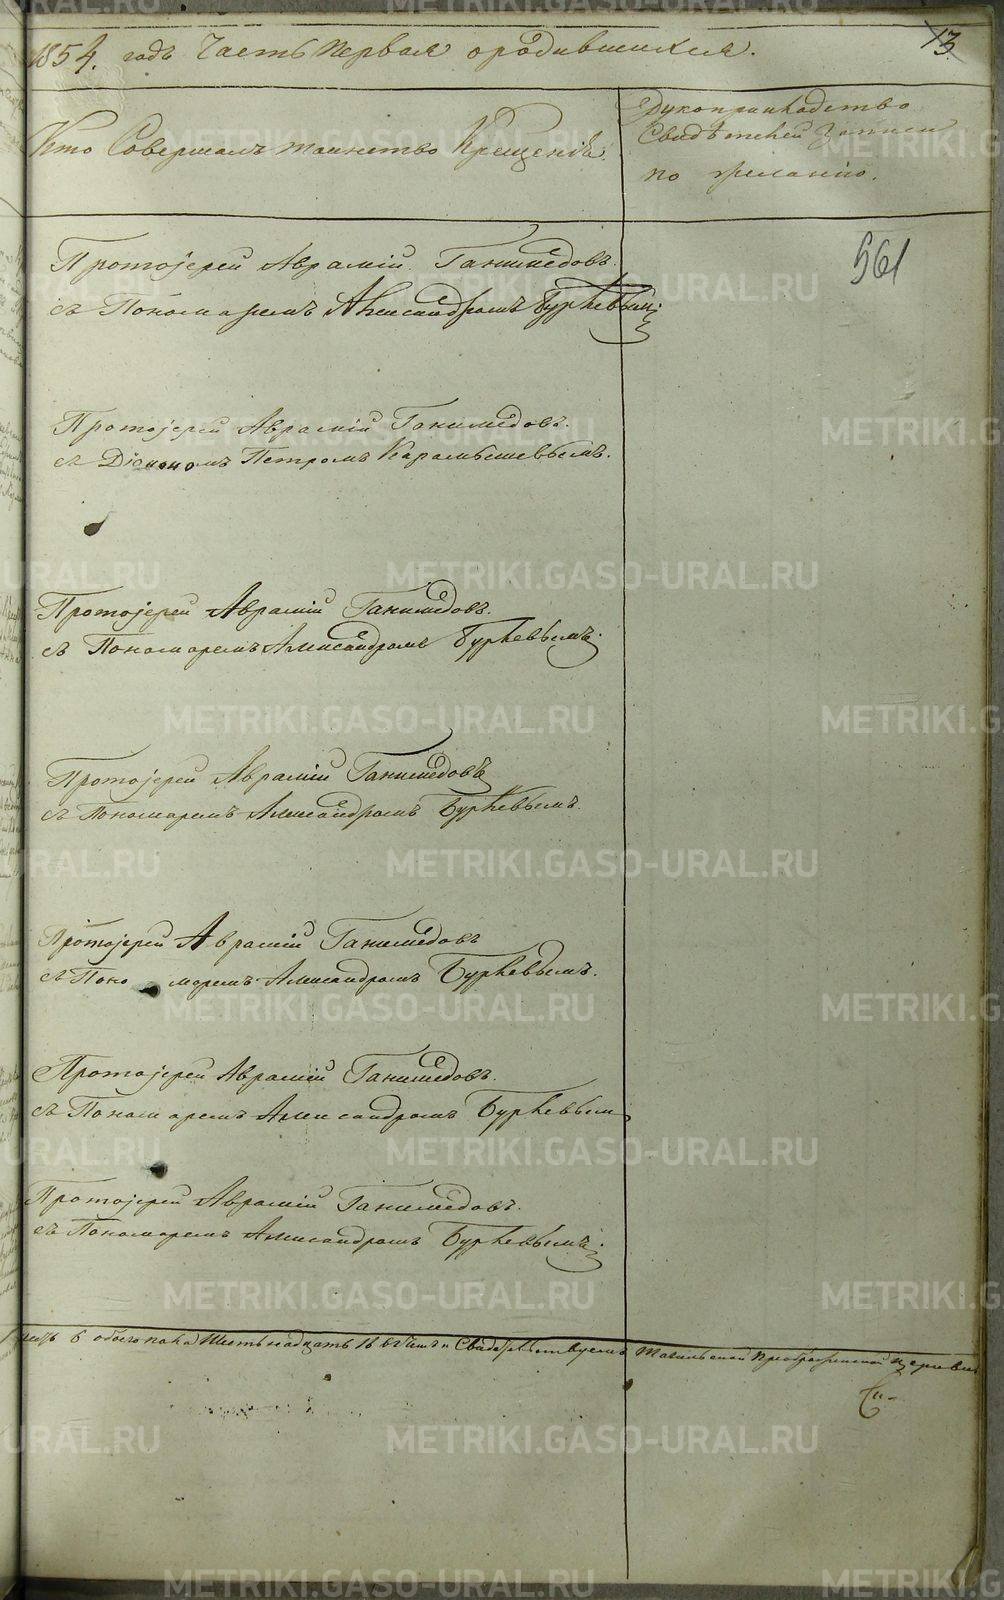 1854. годъ Часть первая о родившихся.
13
Кто Совершалъ таинство Крещенія
Рукоприкладство
Свидѣтелей Записи
по желанію.
561
Протоіерей Аврамій Ганимедовъ.
съ Пономаремъ Александромъ Бурневым
Протоіерей Аврамій Ганимедовъ.
съ Діакономъ Петромъ Карамышевымъ.
Протоіерей Аврамій Ганимедовъ.
съ Пономаремъ Александромъ Бурневымъ.
Протоіерей Аврамій Ганимедовъ
съ Пономаремъ Александромъ Бурневымъ.
Протоіерей Аврамій Ганимедовъ
съ Пономаремъ Александромъ Бурневымъ.
Протоіерей Аврамій Ганимедовъ.
съ Пономаремъ Александромъ Бурневым
Протоіерей Аврамій Ганимедовъ.
съ Пономаремъ Александромъ Бурневымъ.
6 обоего пола Шестьнадцать 16 Свидѣтельствуемъ Преображенской церкви
METRIKI.GASO-URAL.RU